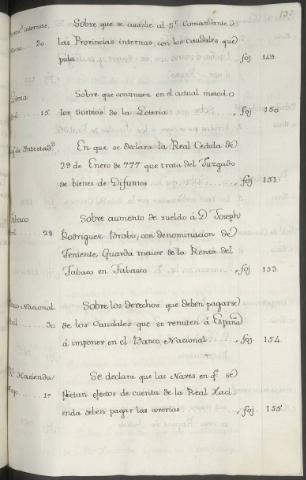 internas. Sobre que se auxilie al Sr. Comandante de
20 las Provincias internas con los Caudales que
pida foj 149.
Sobre que continuen en el actual metodo
15 los sorteos de la Loteria foj 150
En que se declara la Real Cedula de
29 de Enero de 777 que trata del Juzgado
de bienes de Difuntos foj 151.
Tabaco Sobre aumento de sueldo á D. Joseph
28 Rodriguez con denominacion de
Teniente Guarda maior de la Renta del
Tabaco en Tabasco foj 153.
Nacional Sobre los derechos que deben pagarse
30 de los Caudales que se remiten á España
á imponer en el Banco Nacional foj 154
Rl. Hacienda Se declara que las Naves en q.e se
fletan efectos de cuenta de la Real Haci
enda deben pagar las averias foj 155